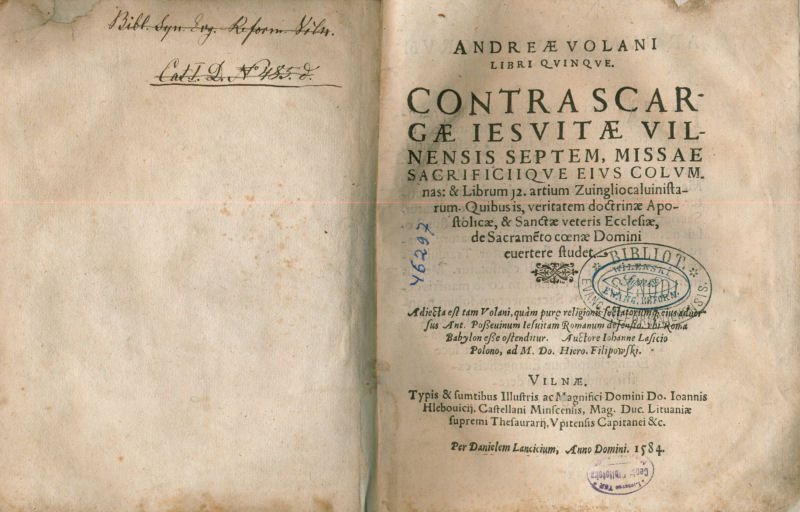 Bibl. Syn. Evg. Reform Viln.
Cat I. D. N 485. d.
ANDREÆ VOLANI
LIBRI QVINQVE.
CONTRA SCAR-
GÆ IESVITÆ VIL-
NENSIS SEPTEM, MISSAE
SACRIFICIIQVE EIVS COLVM.
nas: & Librum 12. artium Zuingliocaluinista-
rum. Quibus is, veritatem doctrinæ Apo-
stolicæ, & Sanctæ veteris Ecclesiæ,
de Sacramẽto cœnæ Domini
euertere studet.
46297
BIBLIOT.
WILENSKI
SYNOD
EWANG. REFORM.
Adiecta est tam Volani, quàm puræ religionis sectatorumq; eius aduer
sus Ant. Posseuinum Iesuitam Romanum defensio. vbi Roma
Babylon esse ostenditur. Auctore Iohanne Lasicio
Polono, ad M. Do. Hiero. Filipowski.
VILNÆ.
Typis & sumtibus Illustris ac Magnifici Domini Do. Ioannis
Hlebouicij. Castellani Minscensis, Mag. Duc. Lituaniæ
supremi Thesaurarij, Vpitensis Capitanei &c.
Per Danielem Lancicium, Anno Domini. 1584.